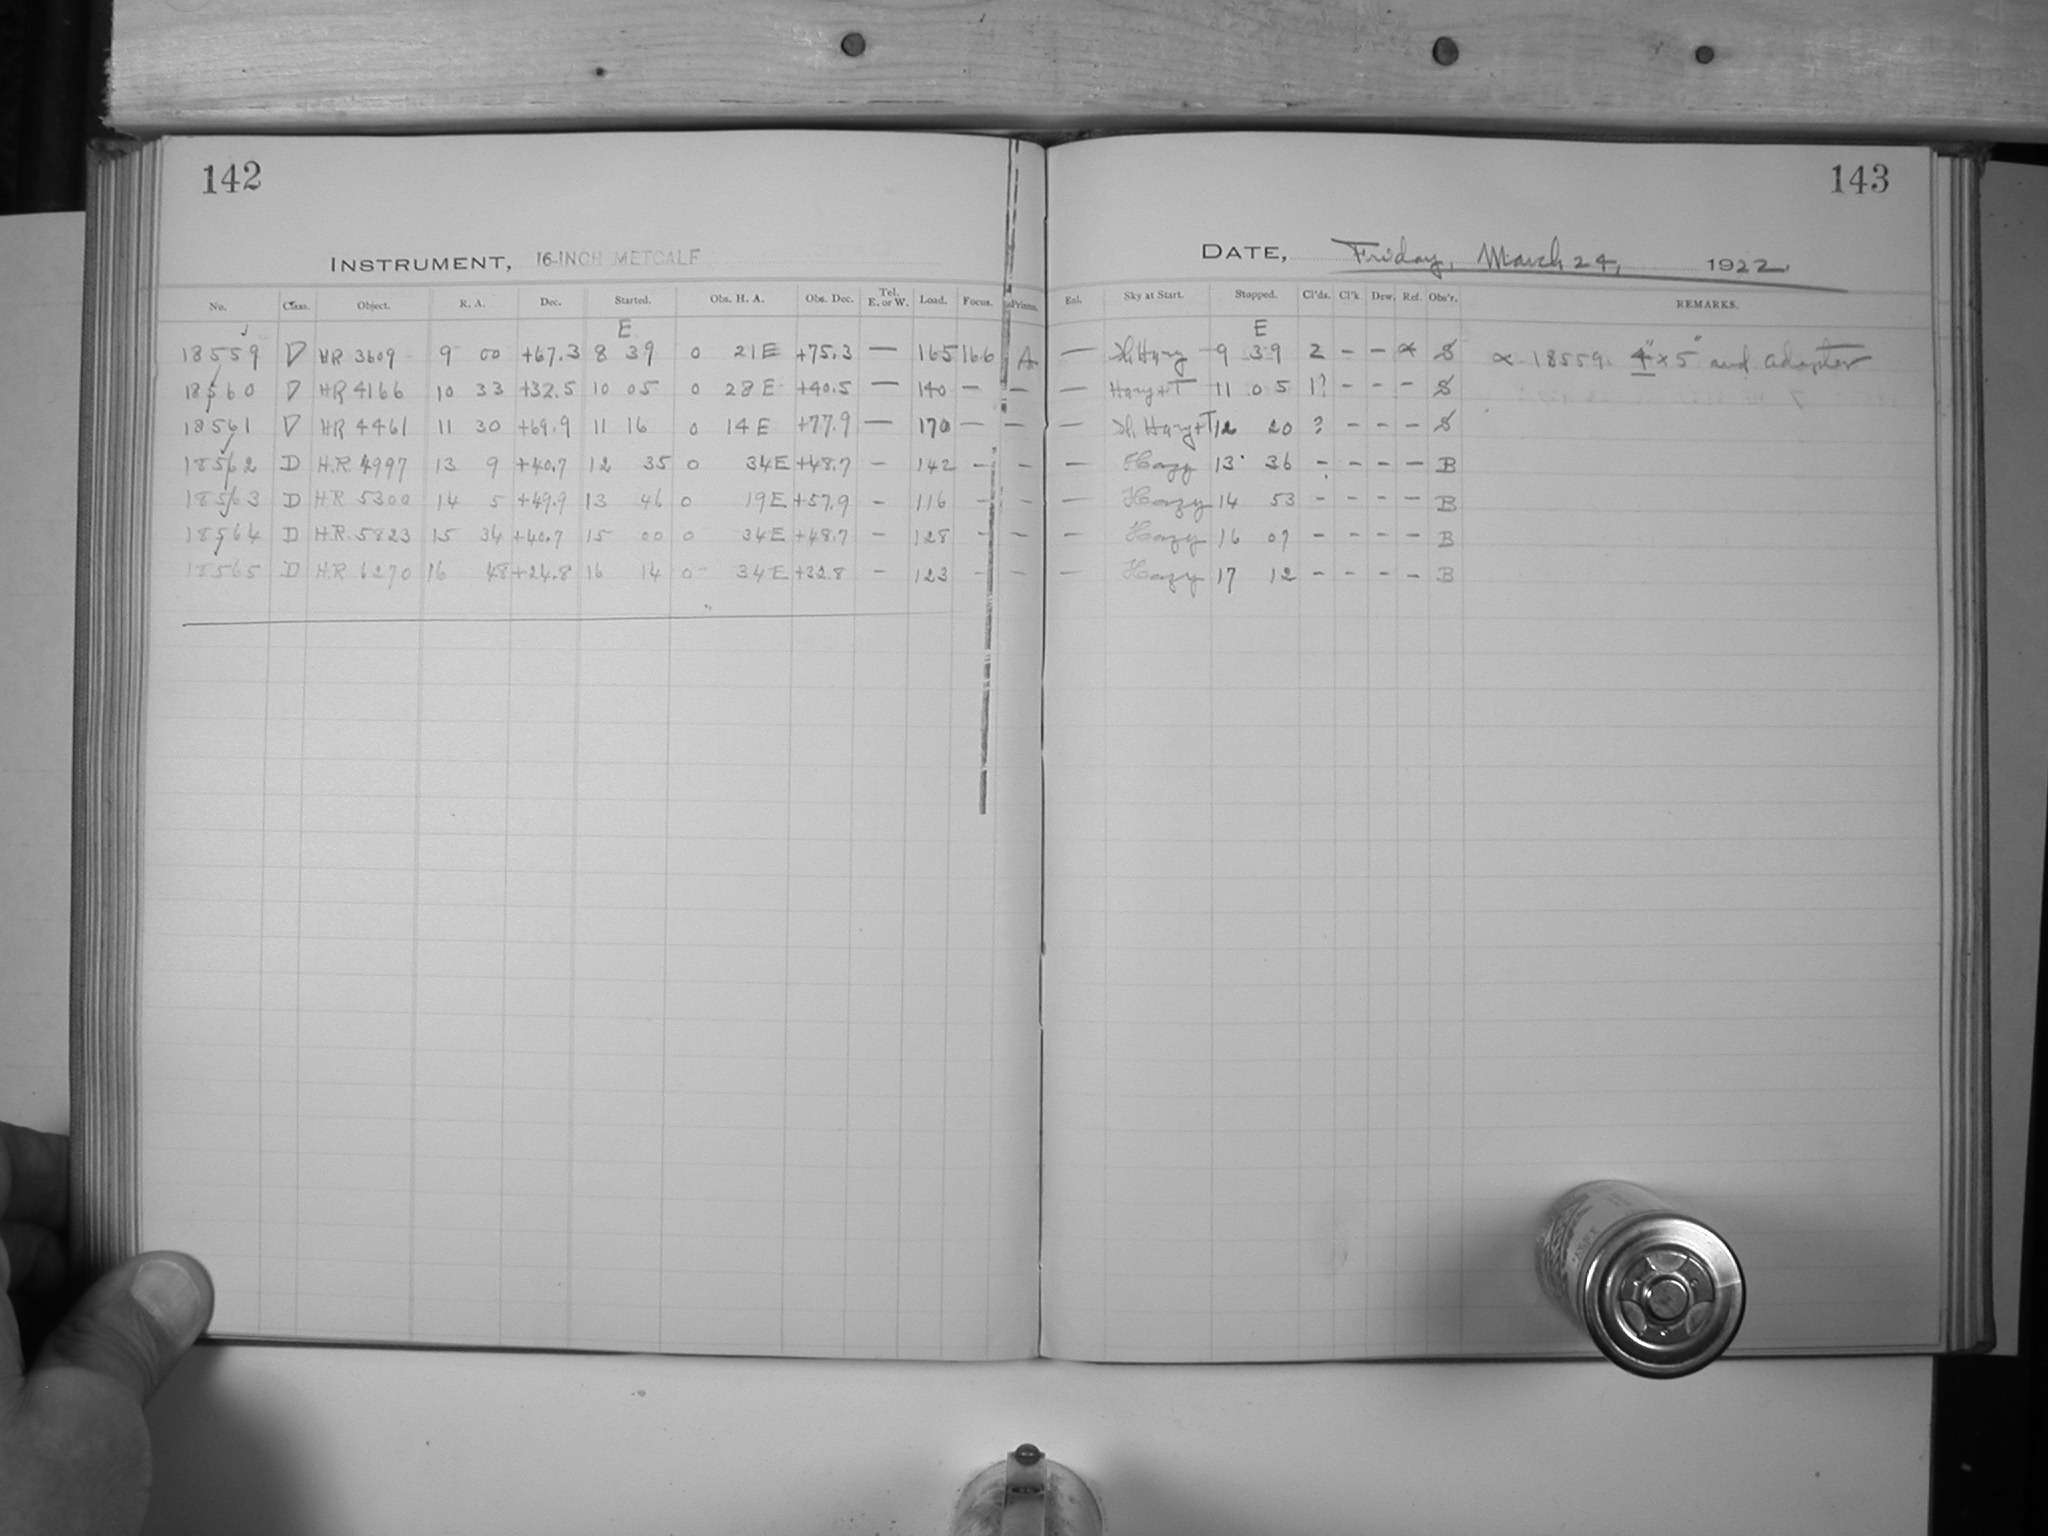 142
INSTRUMENT, 16-INCH METCALF
No. Class. Object. R. A. Dec. Started. Obs. H. A. Obs. Dec. Tel. E. or W. Load. Focus. Prism.
E
18559 D HR 3609 9 00 +67.3 8 39 0 21E +75.3 — 165 166 A
18560 D HR 4166 10 33 +32.5 10 05 0 28E +40.5 — 140 — —
18561 D HR 4461 11 30 +69.9 11 16 0 14E +77.9 — 170 — —
18562 D H.R. 4997 13 9 +40.7 12 35 0 34E +48.7 - 142 - -
18563 D H.R. 5300 14 5 +49.9 13 46 0 19E +57.9 - 116 - -
18564 D H.R. 5823 15 34 +40.7 15 00 0 34E +48.7 - 128 - -
18565 D H.R. 6270 16 48 +24.8 16 14 0 34E +32.8 - 123 - -
143
DATE, Friday, March 24, 1922.
Enl. Sky at Start. Stopped. Cl'ds. Cl'k Dew. Ref. Obs'r. REMARKS.
E
— Hazy 9 39 2 - - α S α 18559. 4" x 5" and adapter
— Hazy+T 11 05 1? - - - S
— Hazy+T 12 20 ? - - - S
— Hazy 13 36 - - - - B
— Hazy 14 53 - - - - B
— Hazy 16 07 - - - - B
— Hazy 17 12 - - - - B